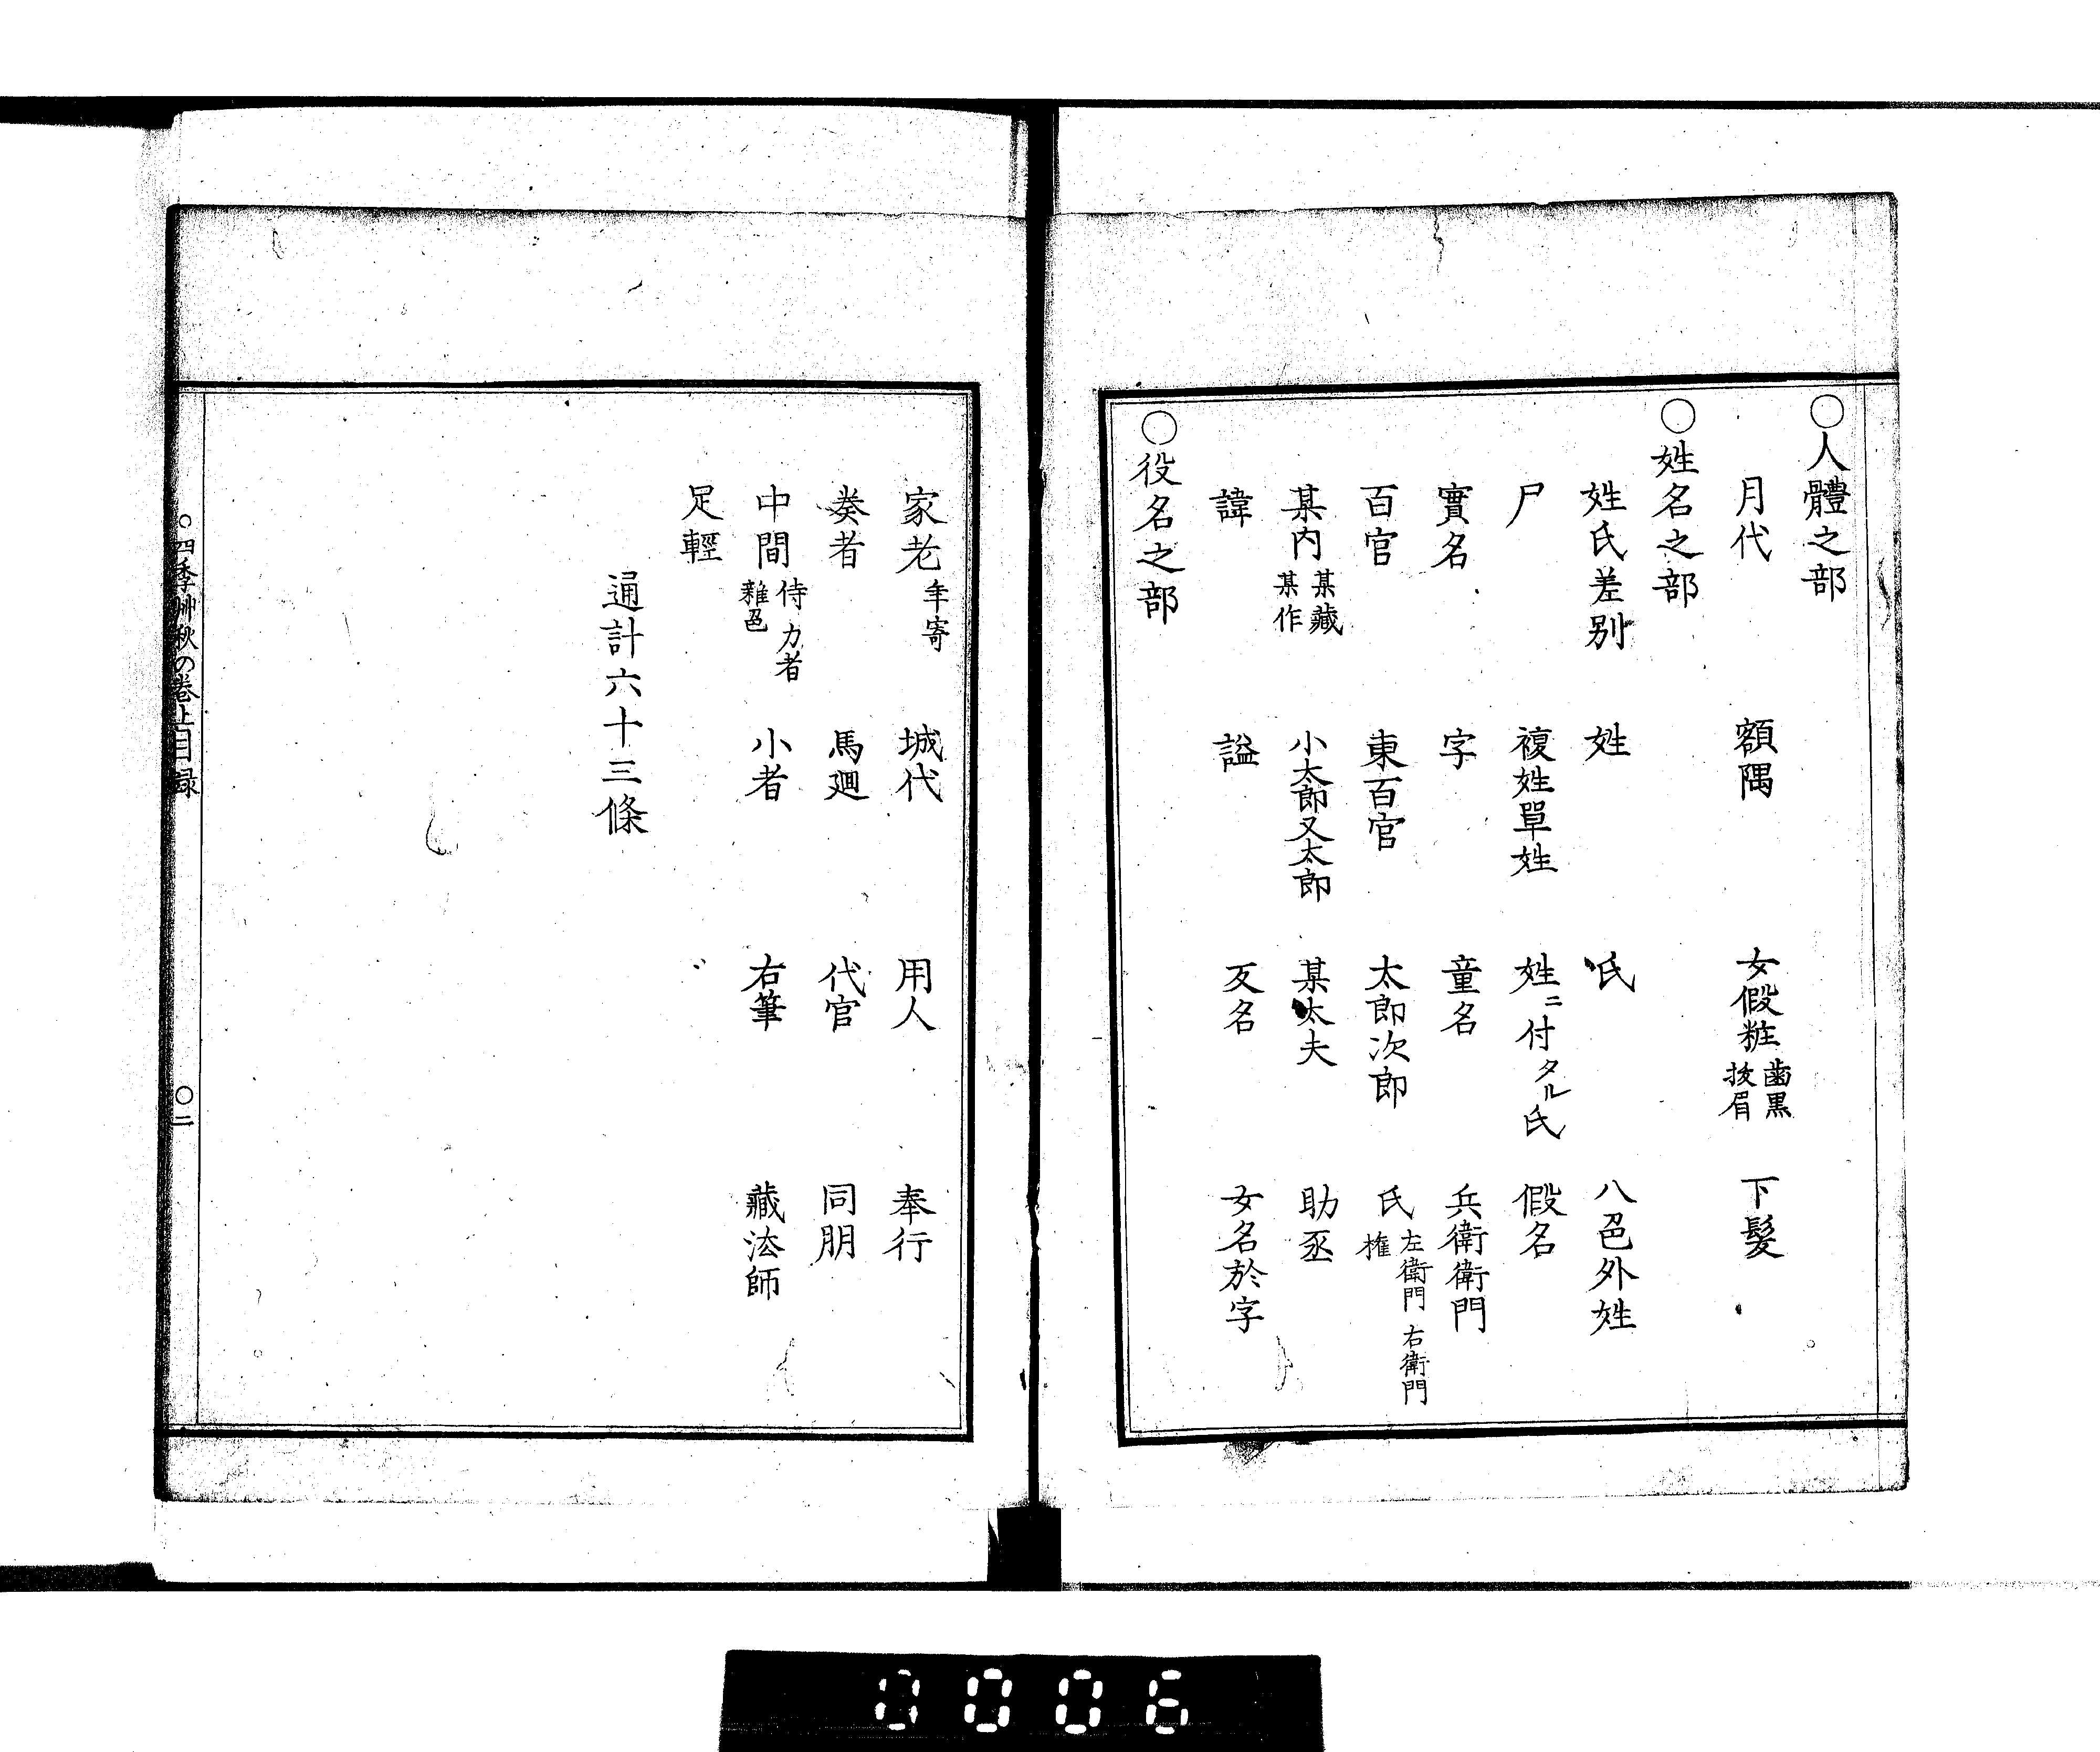 〇人體之部
月代 額隅 女假粧 齒黒 拔眉 下髮
〇姓名之部
姓氏差别 姓 氏 八色外姓
尸 複姓單姓 姓ニ付タル氏 假名
實名 字 童名 兵衛衛門
百官 東百官 太郎次郎 氏 左衛門 右衛門 權
某内 某藏 某作 小太郎又太郎 某太夫 助丞
諱 謚 反名 女名於字
〇役名之部
家老 年寄 城代 用人 奉行
奏者 馬廻 代官 同朋
中間 侍 力者 雜色 小者 右筆 藏法師
足輕
通計六十三條
○四季艸秋の巻上目録 〇二
0006